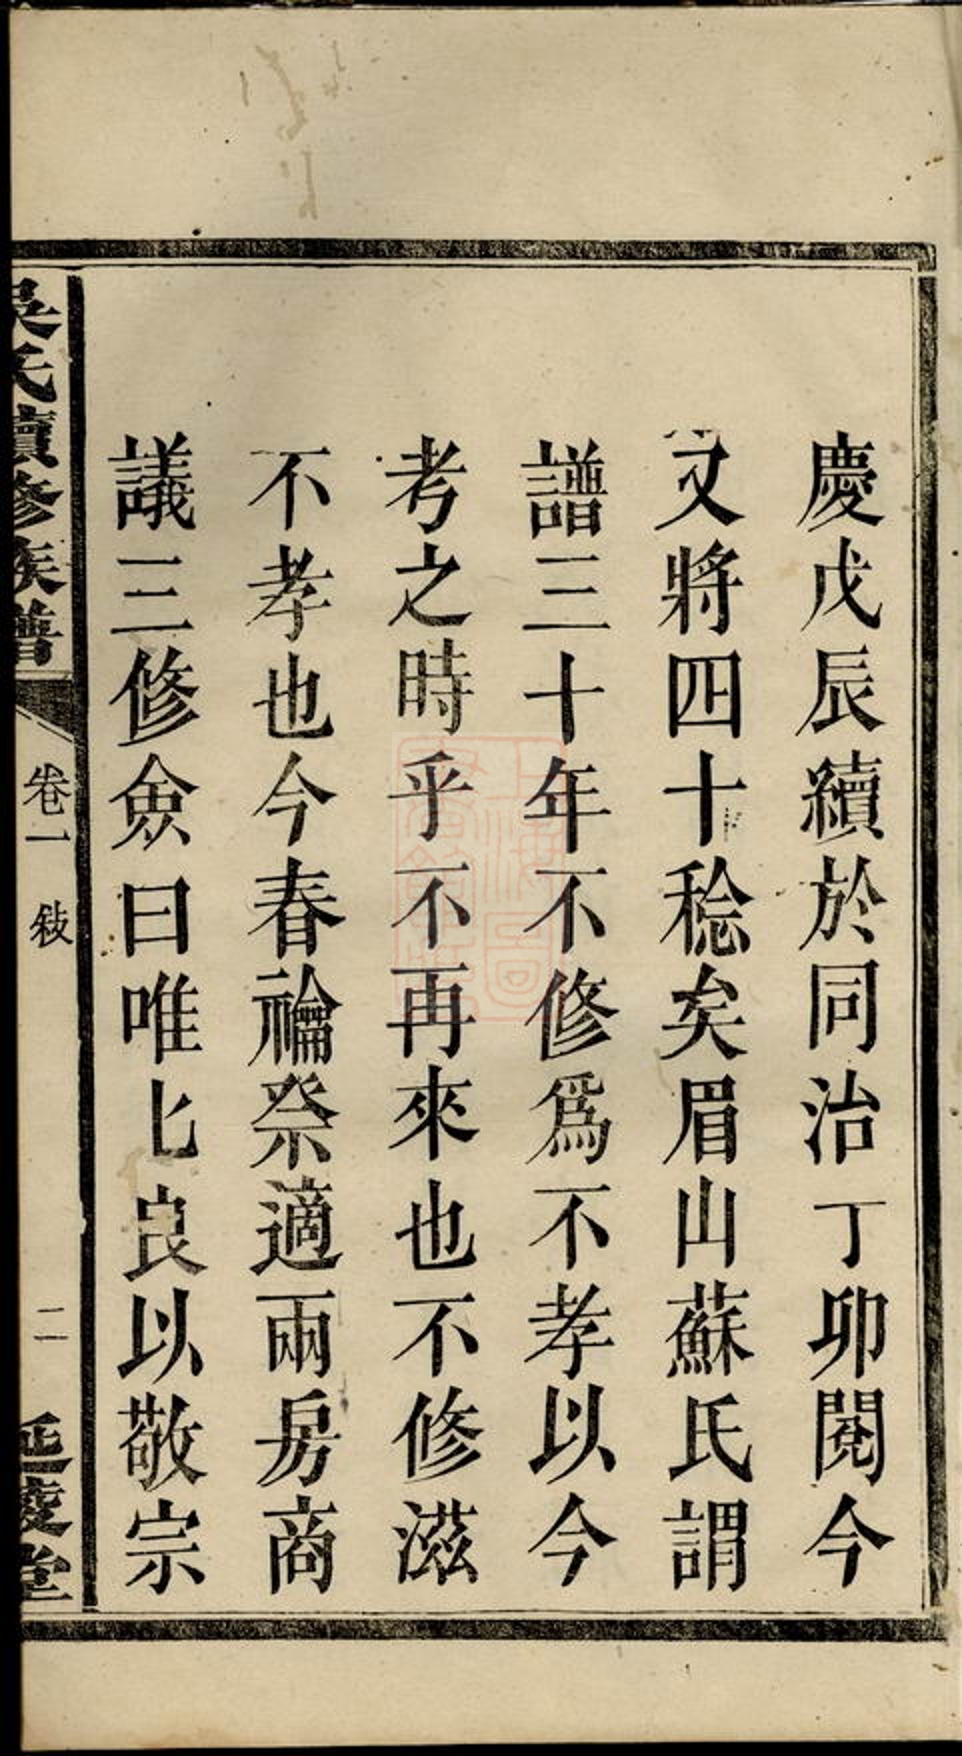 慶戊辰續於同治丁卯閱今
又將四十稔矣眉山蘇氏謂
譜三十年不修爲不孝以今
考之時乎不再來也不修滋
不孝也今春禴祭適兩房商
議三修僉曰唯匕良以敬宗
吳氏續修族譜
卷一 敍
二
延陵堂